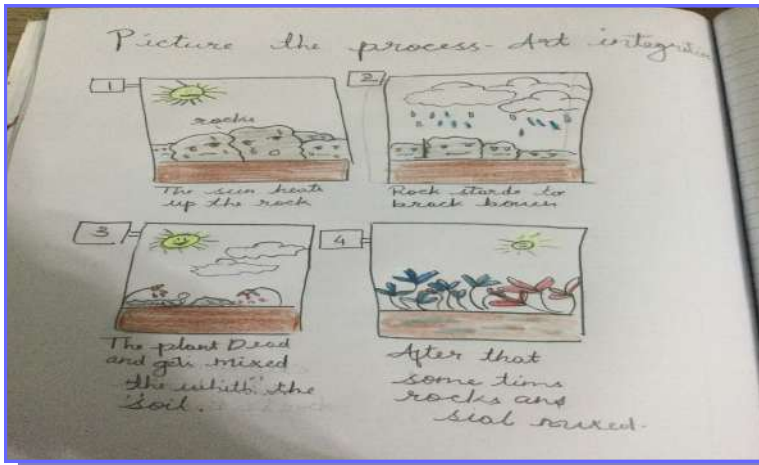 Picture the process - Art integration
1
rocks
The sun heats
up the rock
2
Rock stards to
brack bouen
3
The plant Dead
and gets mixed
the whith the
soil.
4
After that
some tims
rocks and
sial mixed.